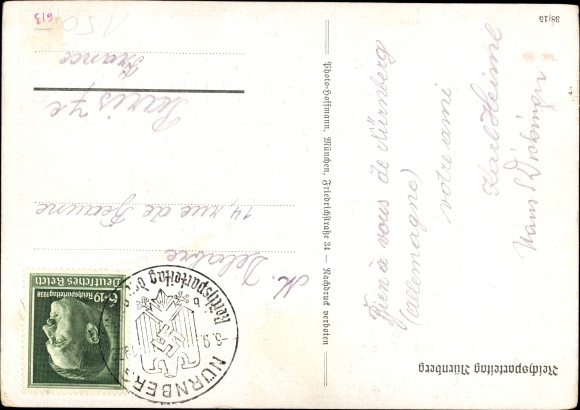 Reichsparteitag Nürnberg
Bien à vous de Nürnberg
(allemagne)
votre ami
Karl Heinz
Hans
38/15
Photo-Hoffmann, München, Friedrichstraße 34 — Nachdruck verboten
6+19
Reichsparteitag 1938
Deutsches Reich
NÜRNBERG
Reichsparteitag der
-6.9.
b
M. Delabre
14, rue de Beaune
Paris 7e
France
150
613